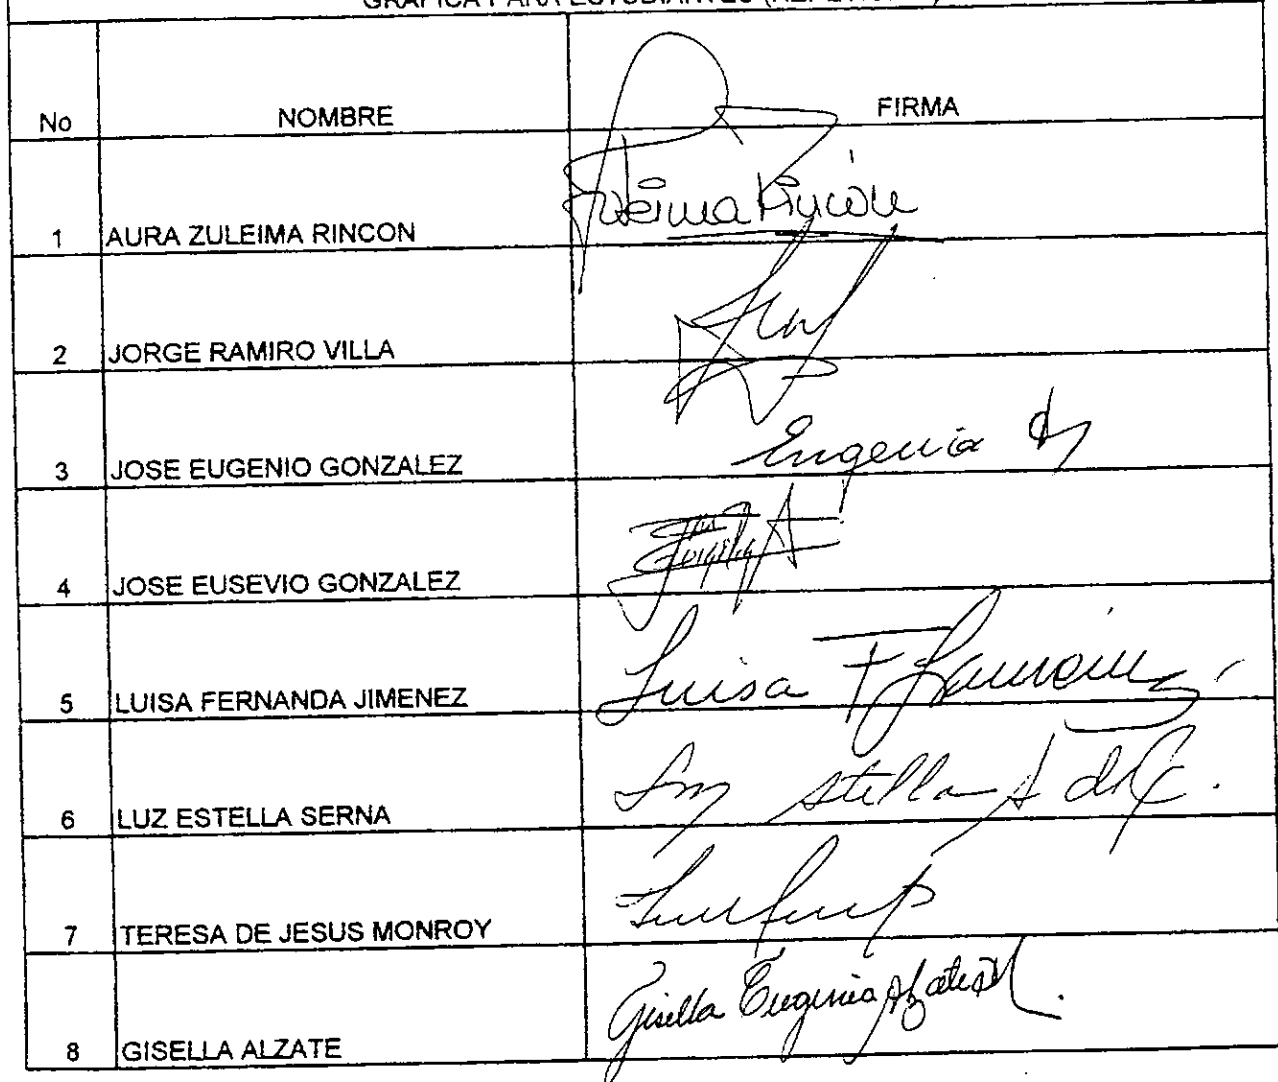 GRAFICA PARA ESTUDIANTES
No NOMBRE FIRMA
1 AURA ZULEIMA RINCON Zuleima Rincón
2 JORGE RAMIRO VILLA
3 JOSE EUGENIO GONZALEZ Eugenia
4 JOSE EUSEVIO GONZALEZ
5 LUISA FERNANDA JIMENEZ Luisa F
6 LUZ ESTELLA SERNA Luz Stella S de
7 TERESA DE JESUS MONROY
8 GISELLA ALZATE Gisella Eugenia Alzate